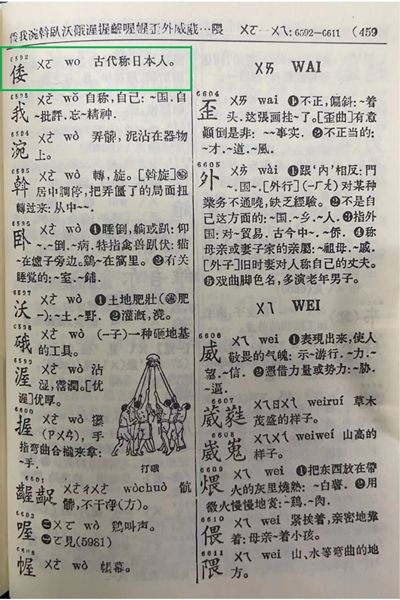 倭我涴斡臥沃硪渥握齷喔幄歪外威葳…隈 ㄨㄛ—ㄨㄟ:6592—6611 (459
6592
倭 ㄨㄛ wo 古代称日本人。
6593
我 ㄨㄛˇ wǒ 自称,自己:~国.自
~批評.忘~精神.
6594
涴 ㄨㄛˋ wò 弄髒,泥沾在器物
上。
斡 ㄨㄛˋ wò 轉,旋。[斡旋]
居中調停,把弄僵了的局面扭
轉过来:从中~~.
臥 ㄨㄛˋ wò ❶睡倒,躺或趴:仰
~.~倒.~病.特指禽兽趴伏:猫
~在爐子旁边.鷄~在窩里.❷有关
睡觉的:~室.~鋪.
沃 ㄨㄛˋ wò ❶土地肥壯(肥
一):~土.~野. ❷灌溉,澆。
硪 ㄨㄛˋ wò (一子)一种砸地基
的工具。
渥 ㄨㄛˋ wò 沾
湿,霑潤。[优
渥]优厚。
握 ㄨㄛˋ wò 攥
手
指弯曲合攏来拿:
~手.
打硪
6601
齷齪 wòchuò 骯
髒,不干淨(方)。
6603
喔 ㊀ㄨㄛˋ wò 鷄叫声。
㊁見(5981)
幄 ㄨㄛˋ wò 帳幕。
ㄨㄞ WAI
6604
歪 ㄨㄞ wai ❶不正,偏斜:~着
头.这張画挂~了.[歪曲]有意
顚倒是非:~~事实.❷不正当的:
~才.~道.~風.
6605
外 ㄨㄞˋ wài ❶跟‘內’相反:門
~.国~.[外行](-ㄏㄤˊ)对某种
業务不通曉,缺乏經驗。❷不是自
己这方面的:~国.~乡.~人.❸指外
国:对~貿易.古今中~.~侨.❹称
母亲或妻子家的亲屬:~祖母.~戚.
[外子]旧时妻对人称自己的丈夫。
❺戏曲脚色名,多演老年男子。
ㄨㄟ WEI
6606
威 ㄨㄟ wei ❶表現出来,使人
敬畏的气魄:示~游行.~力.~
望.~信.❷凭借力量或势力:~胁.
~逼.
6607
葳蕤 weiruí 草木
茂盛的样子。
6608
威嵬 ㄨㄟㄨㄟˊ weiweí 山高的
样子。
6609
煨 ㄨㄟ wei ❶把东西放在帶
火的灰里燒熟:~白薯.❷用
微火慢慢地煮:~鷄.~肉.
6610
偎 ㄨㄟ wei 紧挨着,亲密地靠
着:母亲~着小孩.
6611
隈 ㄨㄟ wei 山、水等弯曲的地
方。